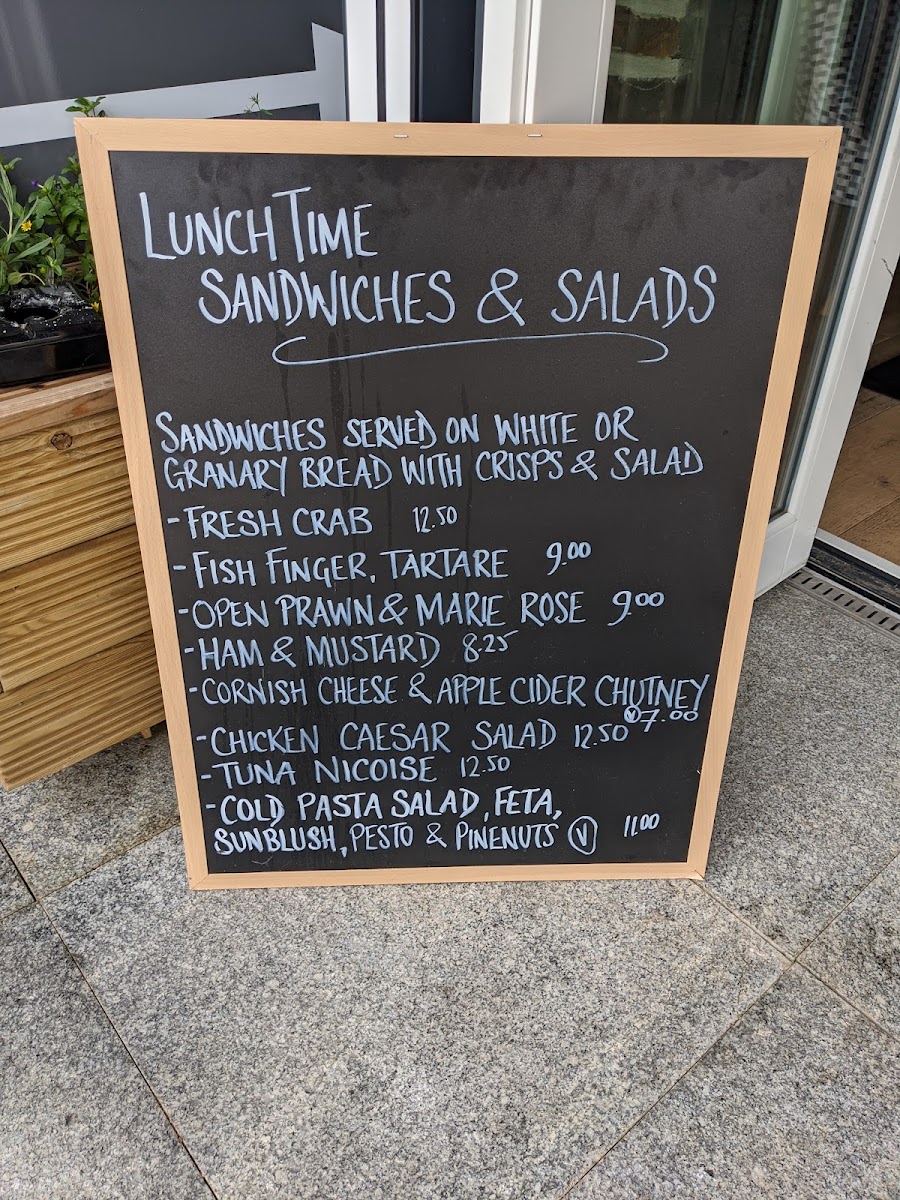 LUNCH TIME
SANDWICHES & SALADS
SANDWICHES SERVED ON WHITE OR
GRANARY BREAD WITH CRISPS & SALAD
- FRESH CRAB 12.50
- FISH FINGER, TARTARE 9.00
- OPEN PRAWN & MARIE ROSE 9.00
- HAM & MUSTARD 8.25
- CORNISH CHEESE & APPLE CIDER CHUTNEY
V 7.00
- CHICKEN CAESAR SALAD 12.50
- TUNA NICOISE 12.50
- COLD PASTA SALAD, FETA,
SUNBLUSH, PESTO & PINENUTS V 11.00